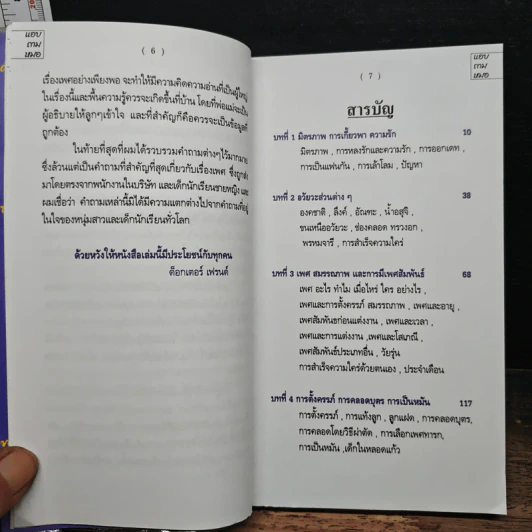 แอบ
ถาม
หมอ
( 6 )
เรื่องเพศอย่างเพียงพอ จะทำให้มีความคิดความอ่านที่เป็นผู้ใหญ่
ในเรื่องนี้และพื้นความรู้ควรจะเกิดขึ้นที่บ้าน โดยที่พ่อแม่จะเป็น
ผู้อธิบายให้ลูกๆเข้าใจ และที่สำคัญก็คือควรจะเป็นข้อมูลที่
ถูกต้อง
ในท้ายที่สุดที่ผมได้รวบรวมคำถามต่างๆไว้มากมาย
ซึ่งล้วนแต่เป็นคำถามที่สำคัญที่สุดเกี่ยวกับเรื่องเพศ ซึ่งถูกส่ง
มาโดยตรงจากพนักงานในบริษัท และเด็กนักเรียนชายหญิง และ
ผมเชื่อว่า คำถามเหล่านี้มิได้มีความแตกต่างไปจากคำถามที่อยู่
ในใจของหนุ่มสาวและเด็กนักเรียนทั่วโลก
ด้วยหวังให้หนังสือเล่มนี้มีประโยชน์กับทุกคน
ด๊อกเตอร์ เฟรนด์
แอบ
ถาม
หมอ
( 7 )
สารบัญ
บทที่ 1 มิตรภาพ การเกี้ยวพา ความรัก 10
มิตรภาพ , การหลงรักและความรัก , การออกเดท ,
การเป็นแฟนกัน , การเล้าโลม , ปัญหา
บทที่ 2 อวัยวะส่วนต่าง ๆ 38
องคชาติ , ลึงค์ , อัณฑะ , น้ำอสุจิ ,
ขนเหนืออวัยวะ , ช่องคลอด ทรวงอก ,
พรหมจารี , การสำเร็จความใคร่
บทที่ 3 เพศ สมรรถภาพ และการมีเพศสัมพันธ์ 68
เพศ อะไร ทำไม เมื่อไหร่ ใคร อย่างไร ,
เพศและการตั้งครรภ์ สมรรถภาพ , เพศและอายุ ,
เพศสัมพันธ์ก่อนแต่งงาน , เพศและเวลา ,
เพศและการแต่งงาน ,เพศและโสเภณี ,
เพศสัมพันธ์ประเภทอื่น , วัยรุ่น
การสำเร็จความใคร่ด้วยตนเอง , ประจำเดือน
บทที่ 4 การตั้งครรภ์ การคลอดบุตร การเป็นหมัน 117
การตั้งครรภ์ , การแท้งลูก , ลูกแฝด , การคลอดบุตร,
การคลอดโดยวิธีผ่าตัด , การเลือกเพศทารก ,
การเป็นหมัน ,เด็กในหลอดแก้ว